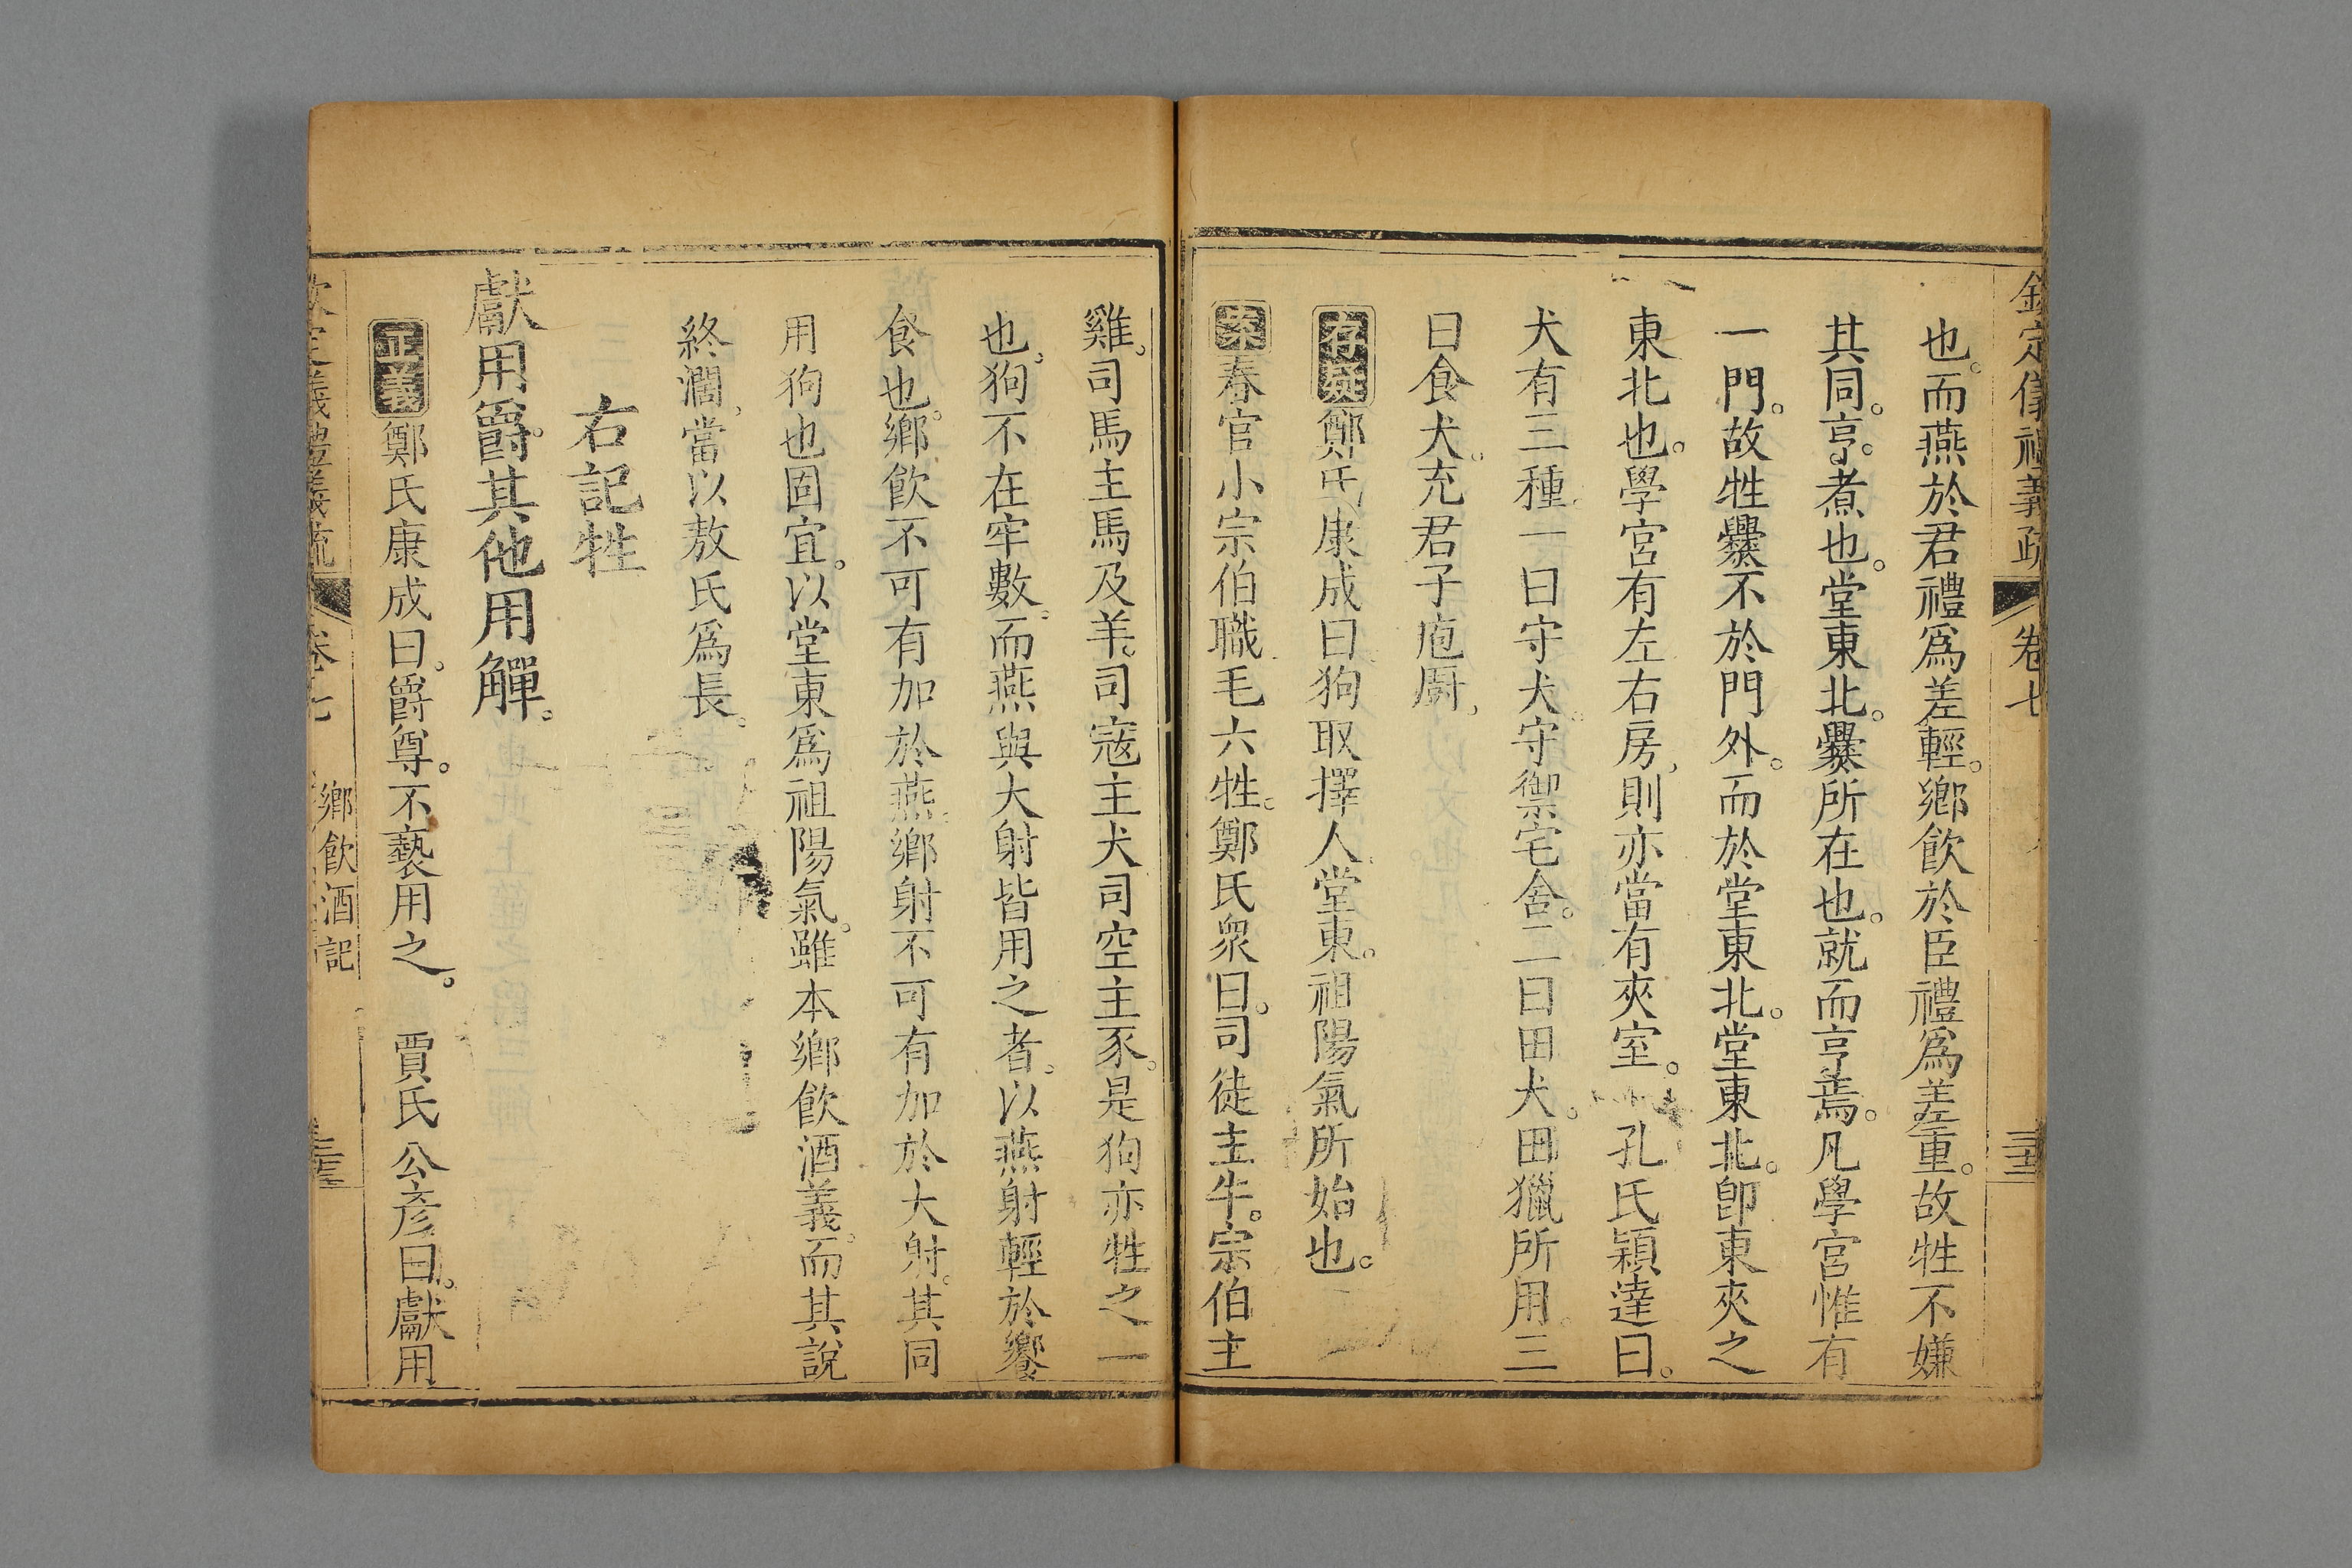 欽定儀禮義疏 卷七 三十五
也。而燕於君禮爲差輕。鄉飲於臣禮爲差重。故牲不嫌
其同。亨。煮也。堂東北。爨所在也。就而亨焉。凡學宮惟有
一門。故牲爨不於門外。而於堂東北。堂東北。卽東夾之
東北也。學宮有左右房。則亦當有夾室。 孔氏穎達曰。
犬有三種。一曰守犬。守禦宅舍。二曰田犬。田獵所用。三
曰食犬。充君子庖廚。
存疑 鄭氏康成曰狗取擇人堂東。祖陽氣所始也。
案 春官小宗伯職毛六牲。鄭氏衆曰。司徒主牛。宗伯主
雞。司馬主馬及羊。司寇主犬司空主豕。是狗亦牲之一
也。狗不在牢數。而燕與大射皆用之者。以燕射輕於饗
食也。鄉飲不可有加於燕。鄉射不可有加於大射。其同
用狗也固宜。以堂東爲祖陽氣。雖本鄉飲酒義。而其說
終濶。當以敖氏爲長。
右記牲
獻用爵。其他用觶。
正義 鄭氏康成曰。爵尊。不褻用之。 賈氏公彥曰。獻用
欽定儀禮義疏 卷七 鄉飲酒記